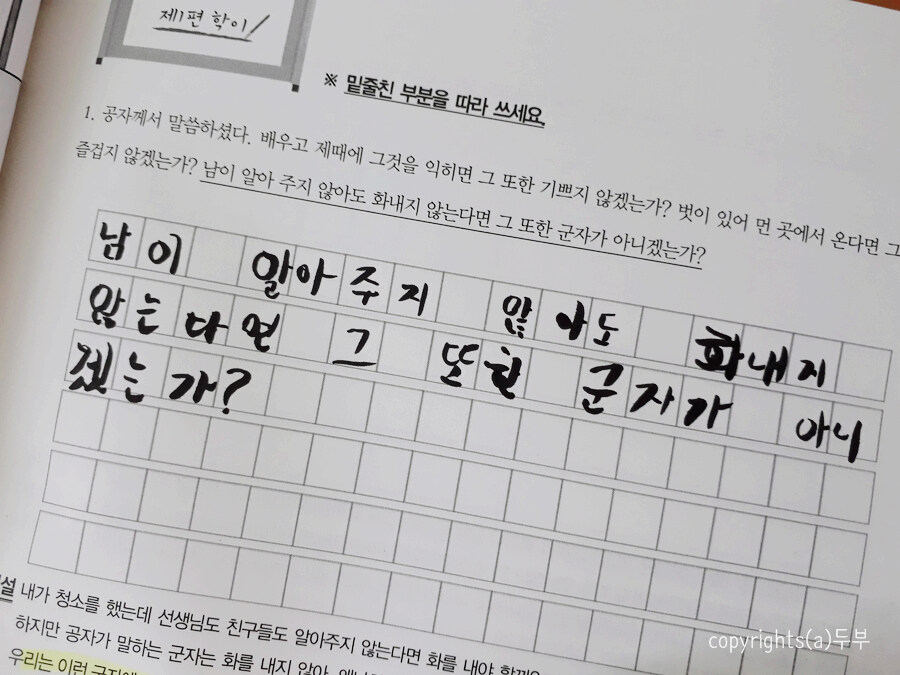 제1편 학이
※ 밑줄친 부분을 따라 쓰세요.
1. 공자께서 말씀하셨다. 배우고 제때에 그것을 익히면 그 또한 기쁘지 않겠는가? 벗이 있어 먼 곳에서 온다면 그
즐겁지 않겠는가? 남이 알아 주지 않아도 화내지 않는다면 그 또한 군자가 아니겠는가?
남이 알아 주지 않아도 화내지
않는다면 그 또한 군자가 아니
겠는가?
설 내가 청소를 했는데 선생님도 친구들도 알아주지 않는다면 화를 내야 할까요
하지만 공자가 말하는 군자는 화를 내지 않아.
우리는 이런 군자
copyrights(a)두부